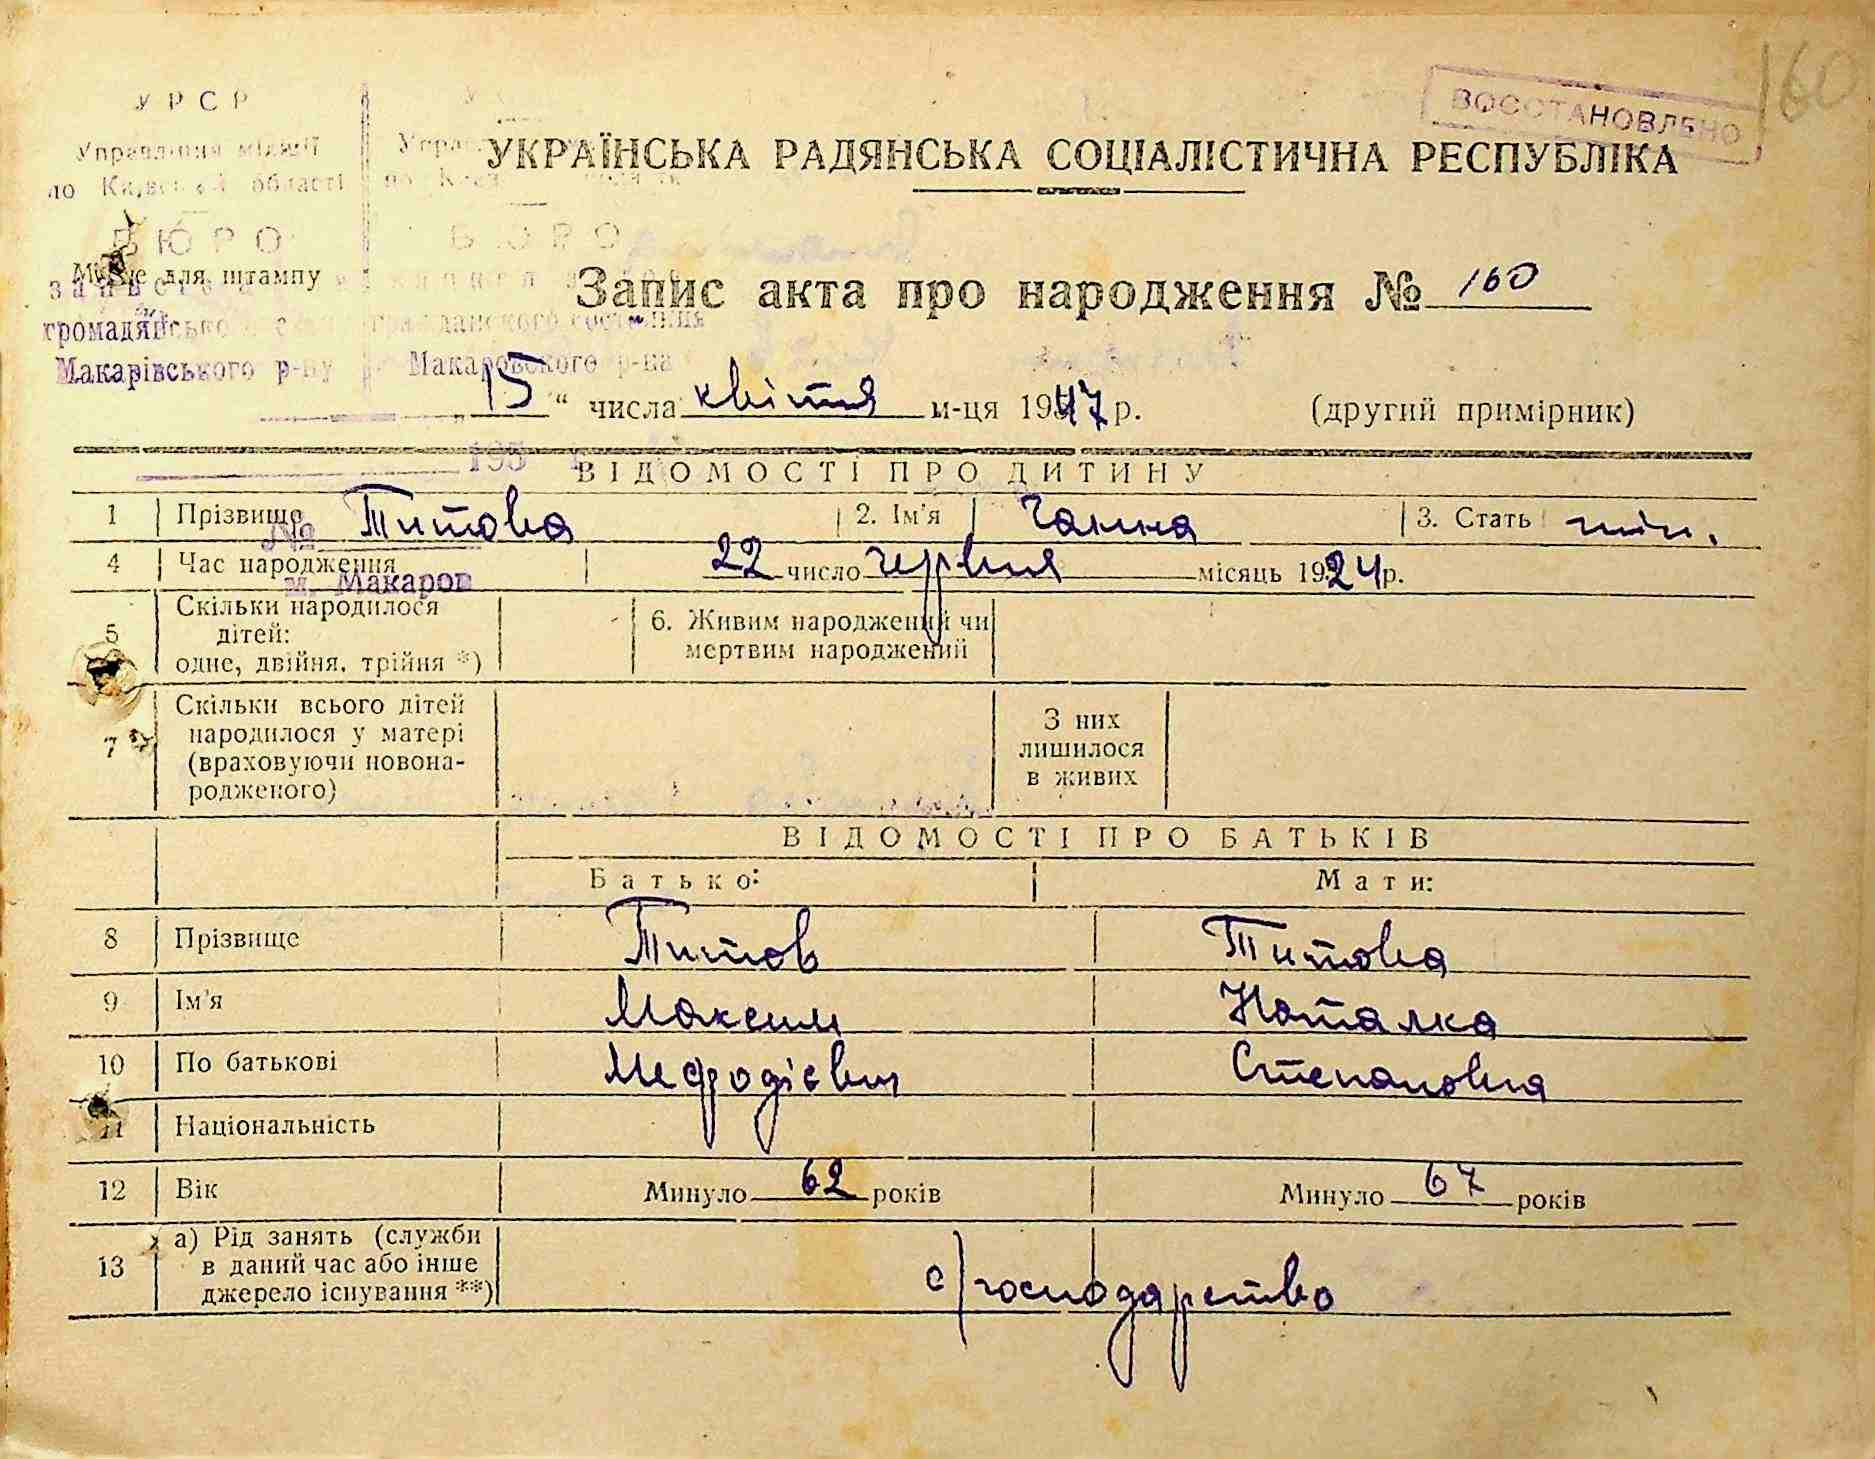 160
ВОССТАНОВЛЕНО
УРСР
Управління міліції
по Київській області
БЮРО
Місце для штампу
громадянського
Макарівського р-ну
БЮРО
гражданского состояния
Макаровского р-на
195
№
м. Макаров
УКРАЇНСЬКА РАДЯНСЬКА СОЦІАЛІСТИЧНА РЕСПУБЛІКА
Запис акта про народження № 160
„15“ числа квітня м-ця 1947 р. (другий примірник)
ВІДОМОСТІ ПРО ДИТИНУ
1 Прізвище Титова 2. Ім'я Ганна 3. Стать жін.
4 Час народження 22 число червня місяць 1924 р.
5 Скільки народилося дітей: одне, двійня, трійня *) 6. Живим народжений чи мертвим народжений
7 Скільки всього дітей народилося у матері (враховуючи новона-родженого) З них лишилося в живих
ВІДОМОСТІ ПРО БАТЬКІВ
Батько: Мати:
8 Прізвище Титов Титова
9 Ім'я Максим Наталка
10 По батькові Мефодієвич Степановна
11 Національність
12 Вік Минуло 62 років Минуло 67 років
13 а) Рід занять (служби в даний час або інше джерело існування **) с/господарство